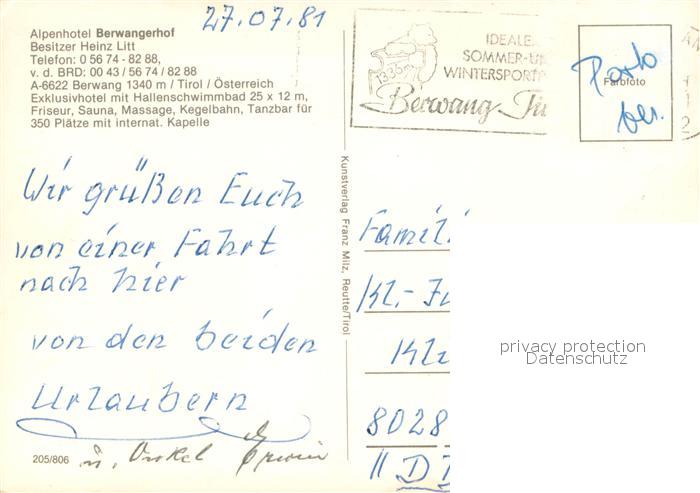 27.07.81
Alpenhotel Berwangerhof
Besitzer Heinz Litt
Telefon: 0 56 74 - 82 88,
v. d. BRD: 00 43 / 56 74 / 82 88
A-6622 Berwang 1340 m / Tirol / Österreich
Exklusivhotel mit Hallenschwimmbad 25 x 12 m,
Friseur, Sauna, Massage, Kegelbahn, Tanzbar für
350 Plätze mit internat. Kapelle
IDEALE
SOMMER-U
WINTERSPORT
1336m
Berwang Ti
Farbfoto
Porto
bez.
Wir grüßen Euch
von einer Fahrt
nach hier
von den beiden
Urlaubern
u. Onkel Erwin
205/806
Kunstverlag Franz Milz, Reutte/Tirol
Famili
Kl.-Ju
Kli
8028
privacy protection
Datenschutz